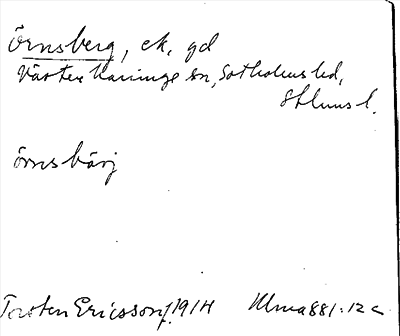 Örnsberg, ek. gd
Västerhaninge sn, Sotholms hd,
Sthlms l.
örnsbärj
Torsten Ericsson 1914 Ulma 881:12 c